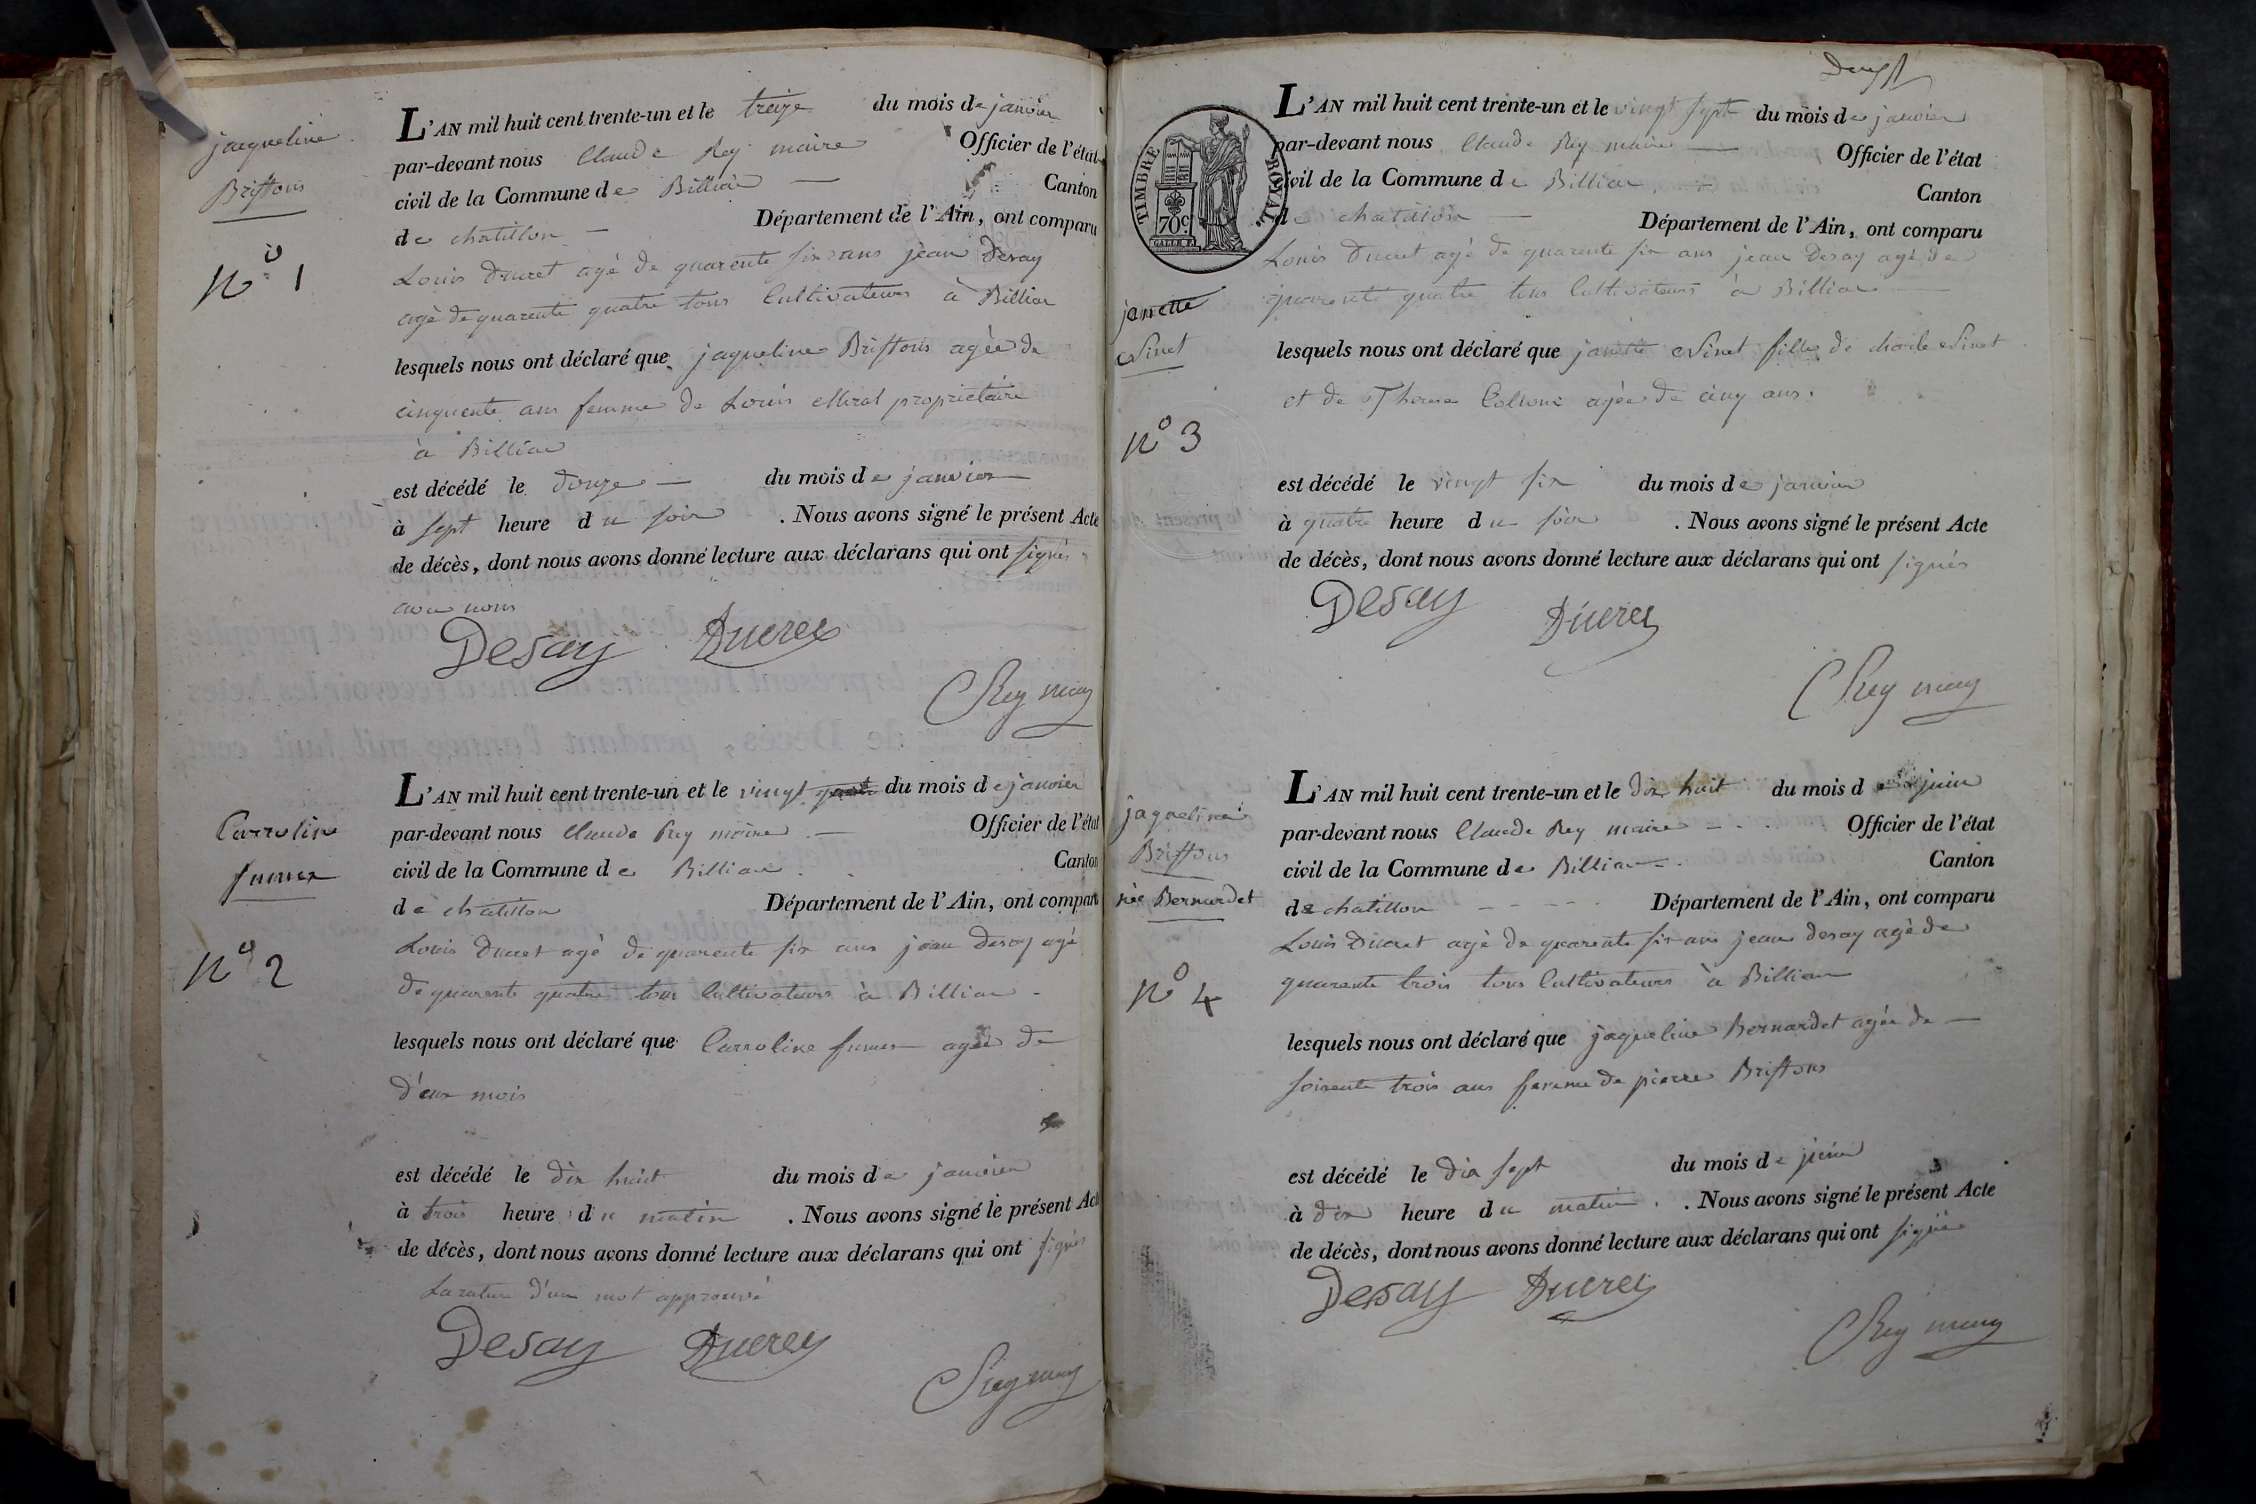 jaqueline
Briffons
N° 1
L'AN mil huit cent trente-un et le treize du mois de janvier
par-devant nous Claude Rey maire Officier de l'état
civil de la Commune de Billiat Canton
de chatillon Département de l'Ain, ont comparu
Louis Ducret agé de quarente six ans jean Desay
agé de quarente quatre tous Cultivateurs à Billiat
lesquels nous ont déclaré que jaqueline Briffons agée de
cinquente ans femme de Louis propriétaire
à Billiat
est décédé le douze du mois de janvier
à sept heure du soir . Nous avons signé le présent Acte
de décès, dont nous avons donné lecture aux déclarans qui ont signés
avec nous
Desay Ducret
C Rey
Carroline
N° 2
L'AN mil huit cent trente-un et le vingt du mois de janvier
par-devant nous Claude Rey maire Officier de l'état
civil de la Commune de Billiat Canton
de chatillon Département de l'Ain, ont comparu
Louis Ducret agé de quarente six ans jean desay agé
de quarente quatre tous Cultivateurs à Billiat
lesquels nous ont déclaré que Carroline agée de
d'eux mois
est décédé le dix huit du mois de janvier
à trois heure du matin . Nous avons signé le présent Acte
de décès, dont nous avons donné lecture aux déclarans qui ont signés
La rature d'un mot approuvé
Desay Ducret
C Rey
TIMBRE ROYAL
70 c.
L'AN mil huit cent trente-un et le vingt sept du mois de janvier
par-devant nous Claude Rey maire Officier de l'état
civil de la Commune de Billiat Canton
de chatillon Département de l'Ain, ont comparu
Louis Ducret agé de quarente six ans jean Desay agé de
quarente quatre tous Cultivateurs à Billiat
janette
N° 3
lesquels nous ont déclaré que janette fille de
et de agée de cinq ans.
est décédé le vingt six du mois de janvier
à quatre heure du soir . Nous avons signé le présent Acte
de décès, dont nous avons donné lecture aux déclarans qui ont signés
Desay Ducret
C Rey
jaqueline
Briffons
née Bernardet
N° 4
L'AN mil huit cent trente-un et le dix huit du mois de juin
par-devant nous Claude Rey maire Officier de l'état
civil de la Commune de Billiat Canton
de chatillon Département de l'Ain, ont comparu
Louis Ducret agé de quarente six ans jean desay agé de
quarente trois tous Cultivateurs à Billiat
lesquels nous ont déclaré que jaqueline Bernardet agée de
soixente trois ans femme de pierre Briffons
est décédé le dix sept du mois de juin
à dix heure du matin . Nous avons signé le présent Acte
de décès, dont nous avons donné lecture aux déclarans qui ont signés
Desay Ducret
C Rey